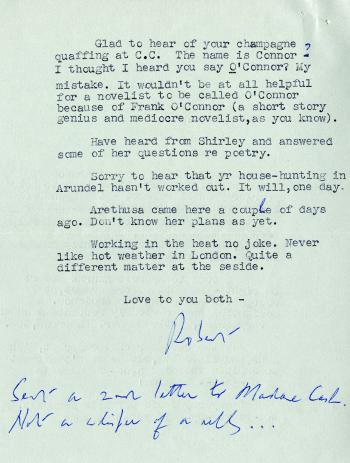 Glad to hear of your champagne
quaffing at C.C. The name is Connor?
I thought I heard you say O'Connor? My
mistake. It wouldn't be at all helpful
for a novelist to be called O'Connor
because of Frank O'Connor (a short story
genius and mediocre novelist,as you know).
Have heard from Shirley and answered
some of her questions re poetry.
Sorry to hear that yr house-hunting in
Arundel hasn't worked out. It will,one day.
Arethusa came here a couple of days
ago. Don't know her plans as yet.
Working in the heat no joke. Never
like hot weather in London. Quite a
different matter at the seside.
Love to you both -
Robert
Sent a 2nd letter to Madame Cash.
Not a whisper of a reply...